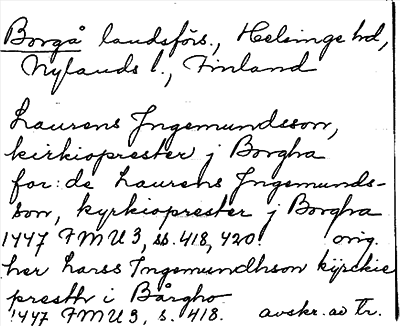 Borgå landsförs., Helsinge hd,
Nylands l., Finland
Laurens Jngemundsson,
kirkioprester j Borgha
for: de Laurens Jngemunds-
son, kyrkioprester j Borgha
1447 FMU 3, ss. 418, 420. orig.
her Larss Jngemundhson kÿrckie
presth i Bårgho
1447 FMU 3, s. 418. avskr. av Tr.